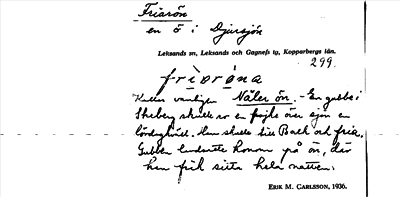 Friarön
en ö i Djursjön
Leksands sn, Leksands och Gagnefs tg, Kopparbergs län.
299.
friarøna
Kallas vanligen Näler ön. - En gubbe i
Skeberg skulle ro en pojke över sjön en
lördagkväll. Han skulle till Backe och fria.
Gubben lurade honom på ön, där
han fick sitta hela natten.
ERIK M. CARLSSON, 1936.